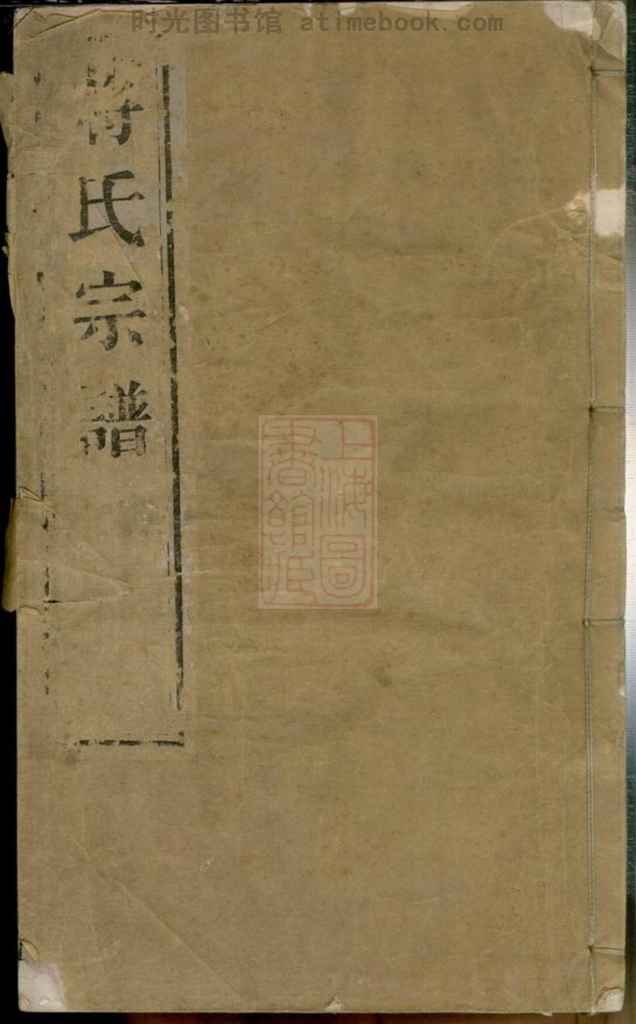 时光图书馆 atimebook.com
蔣氏宗譜
上海圖書館藏